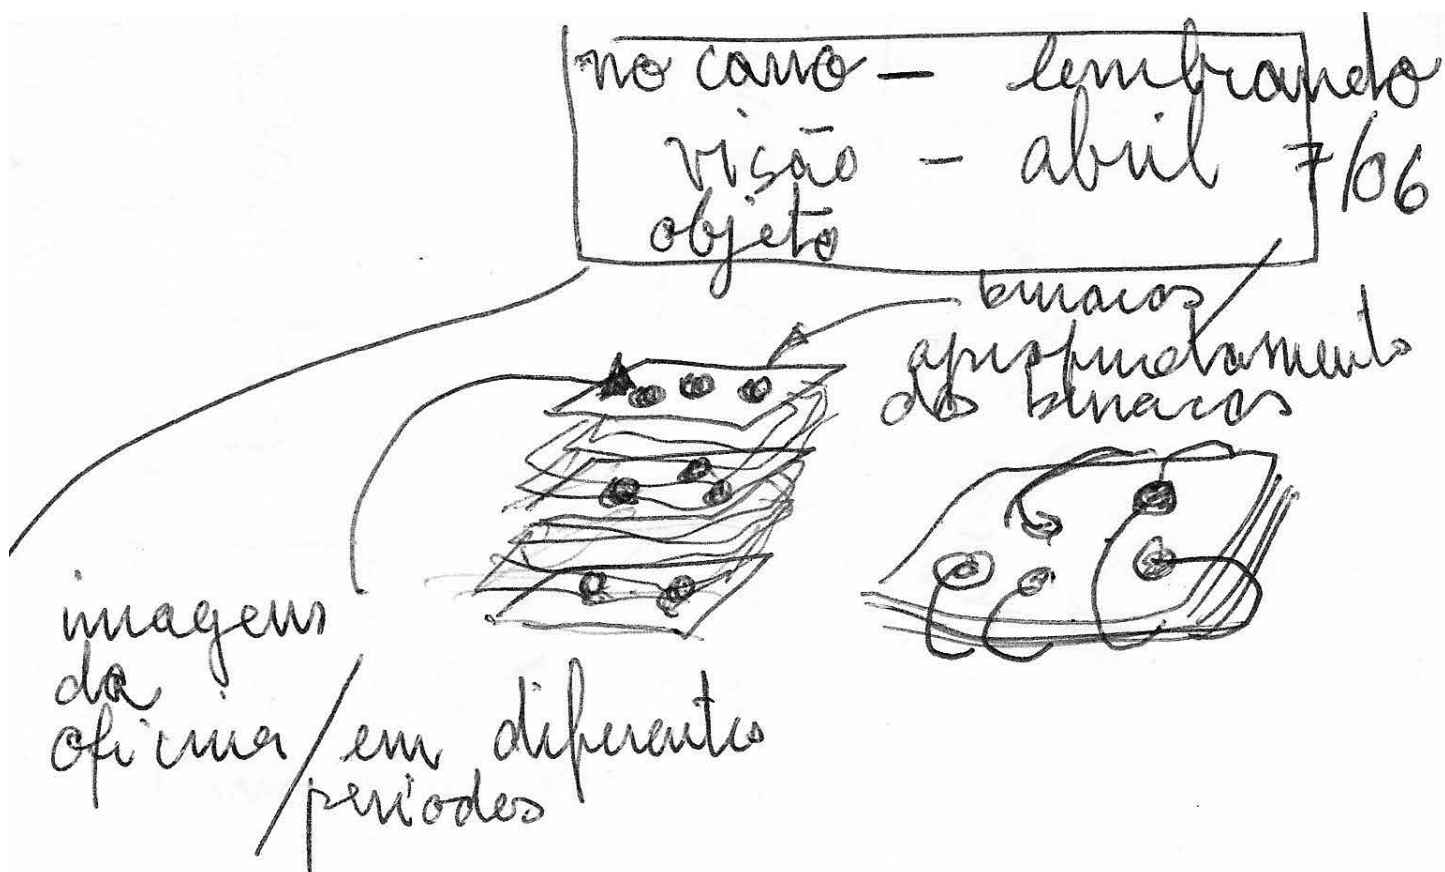 no carro — lembrando
visão — abril 7/06
objeto
buracos
aprofundamento
dos buracos
imagens
da
oficina / em diferentes
períodos